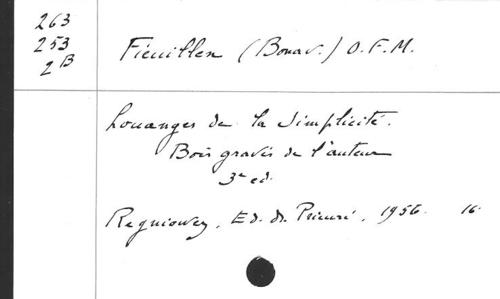 263
253
2B
Fieuillen (Bonav.) O.F.M.
Louanges de la Simplicité.
Bois gravés de l'auteur
3e ed.
Regniowez, Ed. du Prieuré, 1956. 16